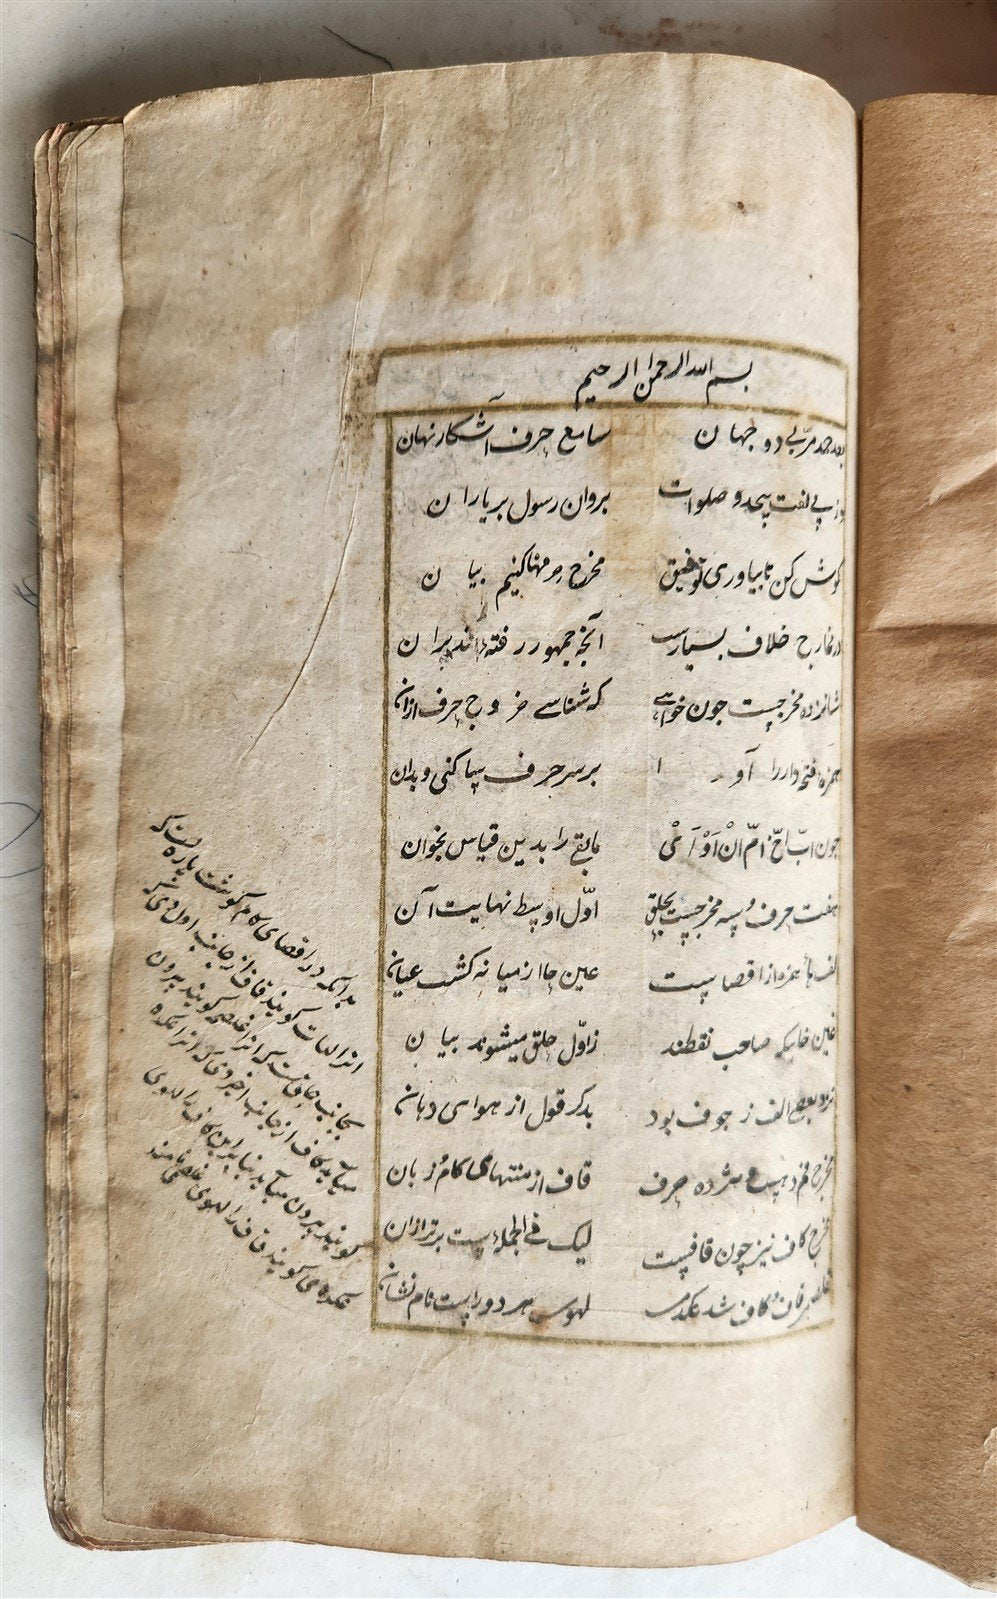 بسم الله الرحمن الرحیم
بعد حمد مربی دو جهان سامع حرف آشکار نهان
پی لغت بیحد و صلوات بروان رسول بر یاران
کوش کن تا بیاوری توفیق مخرج حرمها کنیم بیان
در مخارج خلاف بسیارست آنچه جمهور رفته‌اند بران
شانزده مخرجست چون خواهی که شناسی خروج حرف ازان
همزه فتحه‌دار را آور بر سر حرف ساکنی و بدان
چون اب اخ ام ان او ای مابقی را بدین قیاس بخوان
هفت حرف و سه مخرجست بحلق اول اوسط نهایت آن
الف با همزه از اقصاست عین حا از میانه کشت عیان
غین خا یکه صاحب نقطند ز اول حلق میشوند بیان
نزد بعضی الف ز جوف بود بدکر قول از هوای دهان
مخرج فم دهست و هژده حرف قاف از منتهای کام و زبان
مخرج کاف نیز چون قافست لیک فی الجمله‌ایست برتر ازان
قاف و کاف شد عکدی لهوی هر دو راست نام نشان
بدانکه در اقصای کام کوشت پاره هست که
انرا لهات کویند قاف از جانب اول وی که
بجانب حلق است که انرا غلصمه کویند بیرون
میآید کاف از جانب اخر وی که انرا عکده
کویند بیرون میآید بنابراین کاف را لهوی
عکدی کویند قاف را لهوی غلصمی